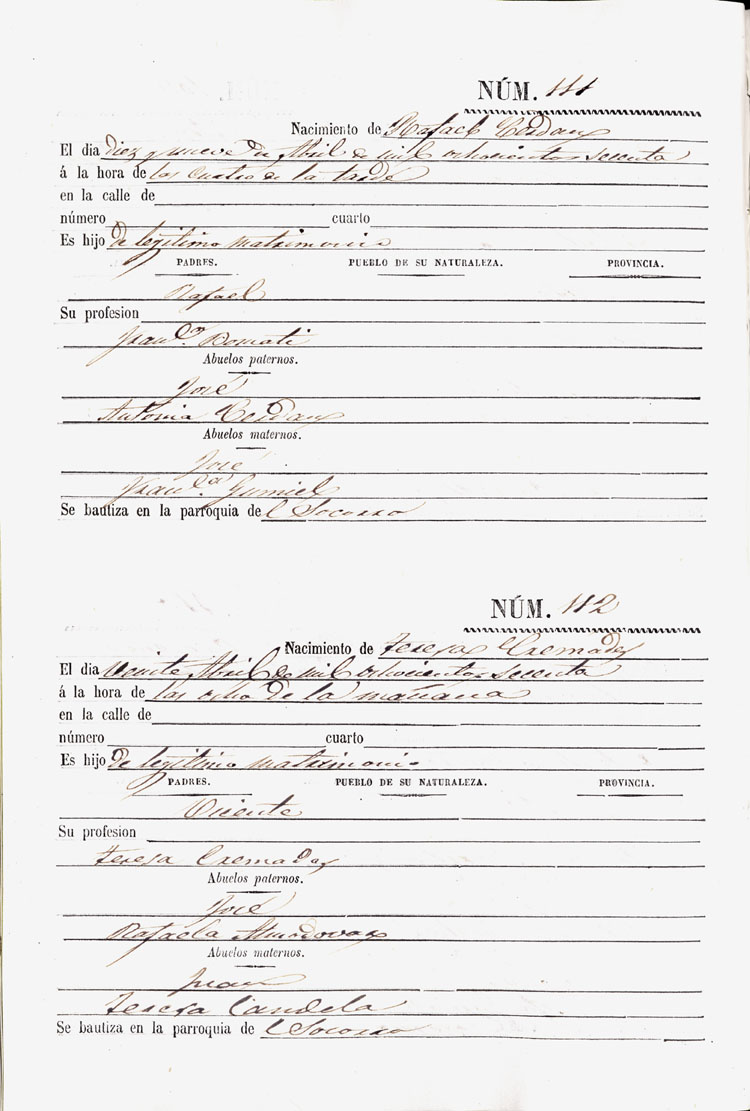 NÚM. 111
Nacimiento de Rafael Cerdan
El dia diez y nueve de Abril de mil ochocientos sesenta
á la hora de las cuatro de la tarde
en la calle de
número cuarto
Es hijo de legitimo matrimonio
PADRES. PUEBLO DE SU NATURALEZA. PROVINCIA.
Rafael
Su profesion
Fran.ca
Abuelos paternos.
José
Antonia Cerdan
Abuelos maternos.
José
Fran.ca Gumiel
Se bautiza en la parroquia de l Socorro
NÚM. 112
Nacimiento de Teresa Cremades
El dia veinte Abril de mil ochocientos sesenta
á la hora de las ocho de la mañana
en la calle de
número cuarto
Es hijo de legitimo matrimonio
PADRES. PUEBLO DE SU NATURALEZA. PROVINCIA.
Vicente
Su profesion
Teresa Cremades
Abuelos paternos.
José
Rafaela Almodovar
Abuelos maternos.
Juan
Teresa Candela
Se bautiza en la parroquia de l Socorro